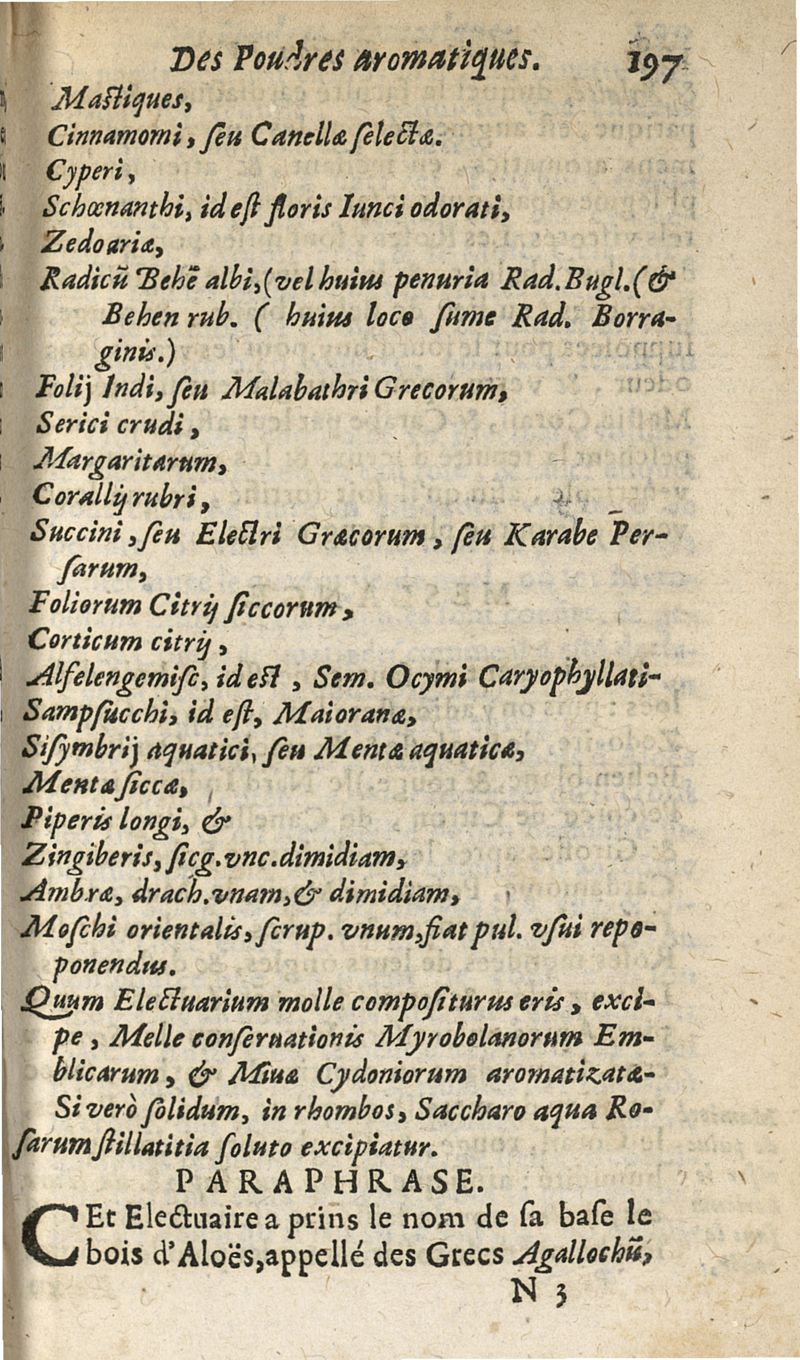 Des Poudres aromatiques. 197
Maſtiques,
Cinnamomi, ſeu Canellæ ſelectæ.
Cyperi,
Schœnanthi, id eſt floris Iunci odorati,
Zedoariæ,
Radicũ Behẽ albi,(vel huius penuria Rad.Bugl.(&
Behen rub. ( huius loco ſume Rad. Borra-
ginis.)
Folij Indi, ſeu Malabathri Grecorum,
Serici crudi,
Margaritarum,
Corallij rubri,
Succini, ſeu Electri Græcorum, ſeu Karabe Per-
ſarum,
Foliorum Citrij ſiccorum,
Corticum citrij,
Alſelengemiſc, id eſt, Sem. Ocymi Caryophyllati-
Sampſucchi, id eſt, Maioranæ,
Siſymbrij aquatici, ſeu Mentæ aquaticæ,
Mentæ ſiccæ,
Piperis longi, &
Zingiberis, ſicg.vnc.dimidiam,
Ambræ, drach.vnam,& dimidiam,
Moſchi orientalis, ſcrup. vnum,fiat pul. vſui repo-
ponendus.
Quum Electuarium molle compoſiturus eris, exci-
pe, Melle conſeruationis Myrobolanorum Em-
blicarum, & Miuæ Cydoniorum aromatizatæ-
Si verò ſolidum, in rhombos, Saccharo aqua Ro-
ſarum ſtillatitia ſoluto excipiatur.
PARAPHRASE.
CEt Electuaire a prins le nom de ſa baſe le
bois d'Aloës,appellé des Grecs Agallochũ,
N 3